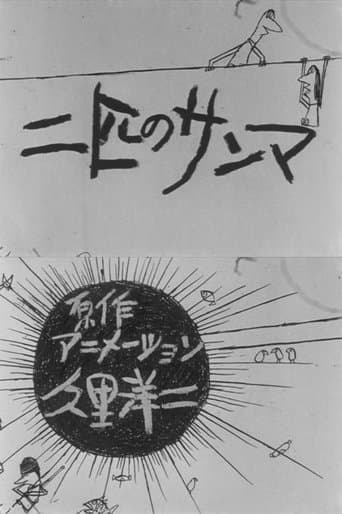 二匹のサンマ
原作
アニメーション
久里洋二